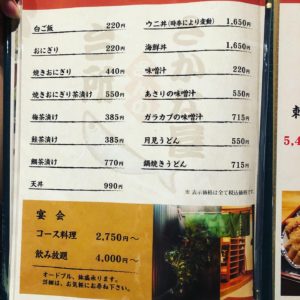 白ご飯 220円
おにぎり 220円
焼きおにぎり 440円
焼きおにぎり茶漬け 550円
梅茶漬け 385円
鮭茶漬け 385円
鯛茶漬け 770円
天丼 990円
ウニ丼(時季により変動) 1,650円
海鮮丼 1,650円
味噌汁 220円
あさりの味噌汁 550円
ガラカブの味噌汁 715円
月見うどん 550円
鍋焼きうどん 715円
※ 表示価格は全て税込価格です。
宴会
コース料理 2,750円〜
飲み放題 4,000円〜
オードブル、鉢盛承ります。
詳細は、お気軽にお尋ね下さい。
刺
5,4